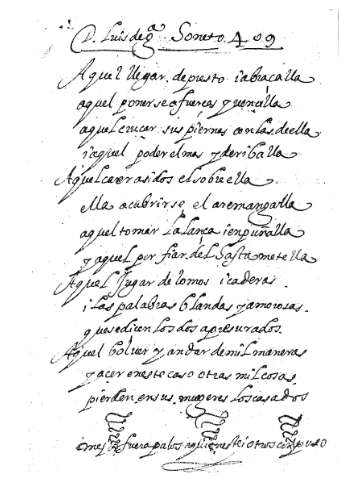 D. Luis de G. Soneto 409
Aquel llegar de presto i abraçalla
aquel ponerse a fuerças y vencilla
aquel cruçar sus piernas con las de ella
i aquel poder el mas y deriballa
Aquel caer asidos el sobre ella
ella a cubrirse, el aremangalla
aquel tomar la lança i enpuñalla
y aquel porfiar del hasta metella
Aquel Jugar de lomos i caderas
i las palabras blandas y amorosas
que se dicen los dos apresurados.
Aquel bolver y andar de mil maneras
y acer en este caso otras mil cosas
pierden en sus mugeres los casados